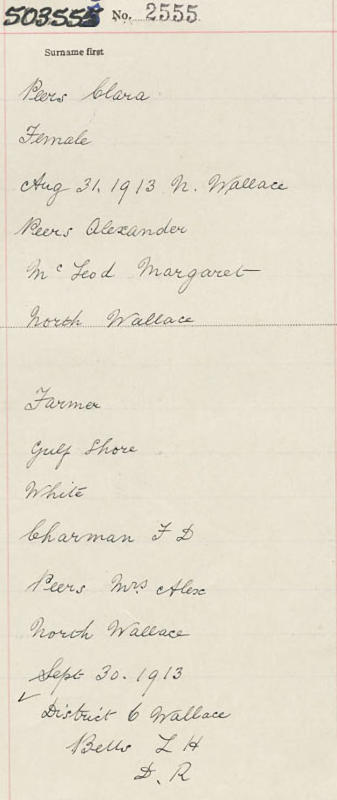 503555 No. 2555
Surname first
Peers Clara
Female
Aug 31, 1913 N. Wallace
Peers Alexander
McLeod Margaret
North Wallace
Farmer
Gulf Shore
White
Charman F D
Peers Mrs Alex
North Wallace
Sept 30. 1913
✓ District 6 Wallace
Betts L H
D. R